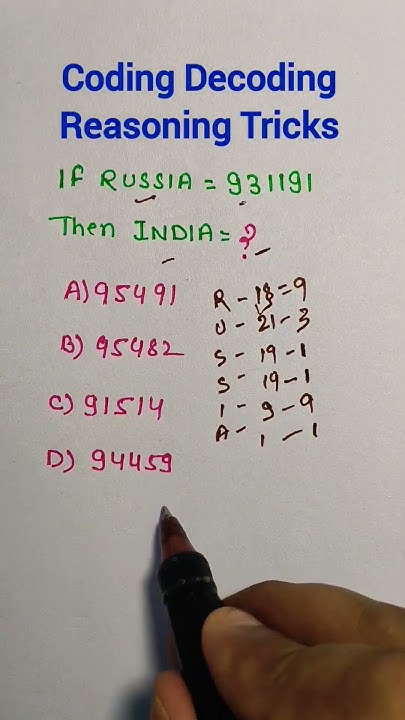 Coding Decoding
Reasoning Tricks
If RUSSIA = 931191
Then INDIA = ?
A) 95491
B) 95482
C) 91514
D) 94459
R - 18 = 9
U - 21 - 3
S - 19 - 1
S - 19 - 1
I - 9 - 9
A - 1 - 1